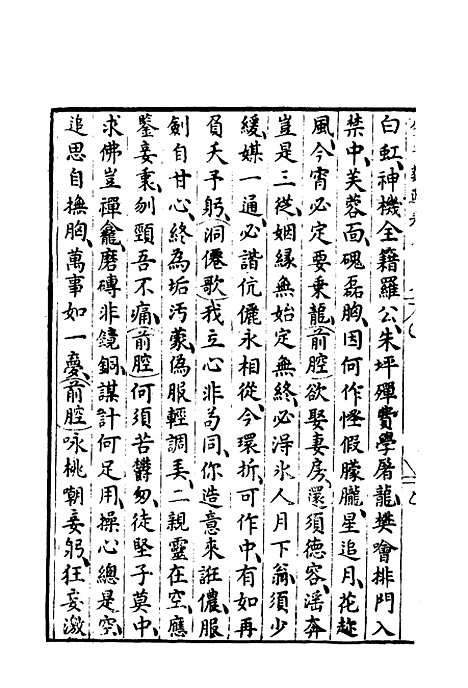 白虹、神機全籍羅公、朱坪殫費學屠龍、樊噲排門入
禁中、芙蓉面、磈磊胸、因何作怪假朦朧、星追月、花趂
風、今宵必定要乘龍、(前腔)欲娶妻房、還須德容、淫奔
豈是三從、姻緣無始定無終、必得氷人月下翁、須少
緩、媒一通、必諧伉儷永相從、今環折、可作中、有如再
負夭予躬、(洞僊歌)我立心非苟同、你造意來誑儂、服
劍自甘心、終為垢汚蒙、偽服輕調美、二親靈在空、應
鑒妾衷、刎頸吾不痛、(前腔)何須苦欝匆、徒堅子莫中、
求佛豈禪龕、磨磚非鏡銅、謀計何足用、操心總是空、
追思自撫胸、萬事如一夢、(前腔)咏桃嘲妾躬、狂妄激